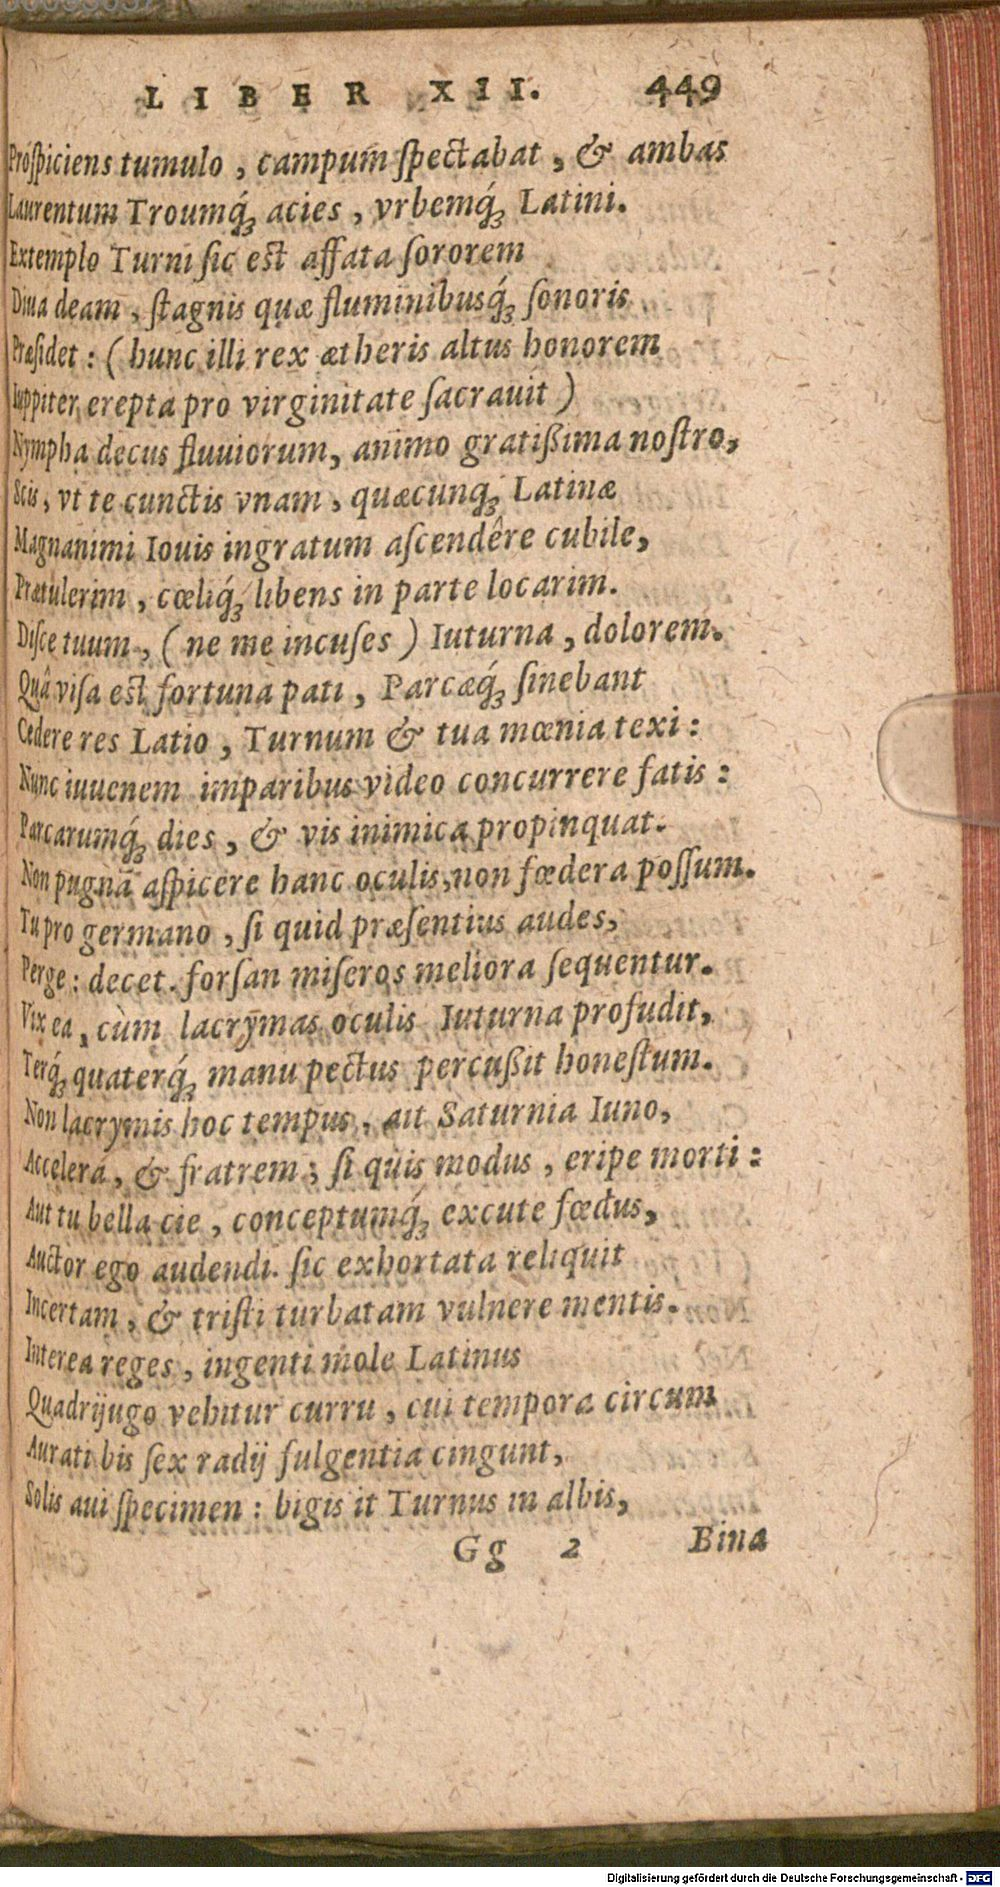 LIBER XII. 449
Prospiciens tumulo, campum spectabat, & ambas
Laurentum Troumq́ꝫ acies, vrbemq́ꝫ Latini.
Extemplo Turni sic est affata sororem
Diua deam, stagnis quæ fluminibusq́ꝫ sonoris
Præsidet: (hunc illi rex ætheris altus honorem
Iuppiter erepta pro virginitate sacrauit)
Nympha decus fluuiorum, animo gratißima nostro,
Scis, vt te cunctis vnam, quæcunqꝫ Latinæ
Magnanimi Iouis ingratum ascendêre cubile,
Prætulerim, cœliq́ꝫ libens in parte locarim.
Disce tuum, (ne me incuses) Iuturna, dolorem.
Quâ visa est fortuna pati, Parcæq́ꝫ sinebant
Cedere res Latio, Turnum & tua mœnia texi:
Nunc iuuenem imparibus video concurrere fatis:
Parcarumq́ꝫ dies, & vis inimica propinquat.
Non pugnã aspicere hanc oculis, non fœdera possum.
Tu pro germano, si quid præsentius audes,
Perge: decet. forsan miseros meliora sequentur.
Vix ea, cùm lacrymas oculis Iuturna profudit,
Terq́ꝫ quaterq́ꝫ manu pectus percußit honestum.
Non lacrymis hoc tempus, ait Saturnia Iuno,
Accelera, & fratrem; si quis modus, eripe morti:
Aut tu bella cie, conceptumq́ꝫ excute fœdus,
Auctor ego audendi. sic exhortata reliquit
Incertam, & tristi turbatam vulnere mentis.
Interea reges, ingenti mole Latinus
Quadrijugo vehitur curru, cui tempora circum
Aurati bis sex radij fulgentia cingunt,
Solis aui specimen: bigis it Turnus in albis,
Gg 2 Bina
Digitalisierung gefördert durch die Deutsche Forschungsgemeinschaft - DFG